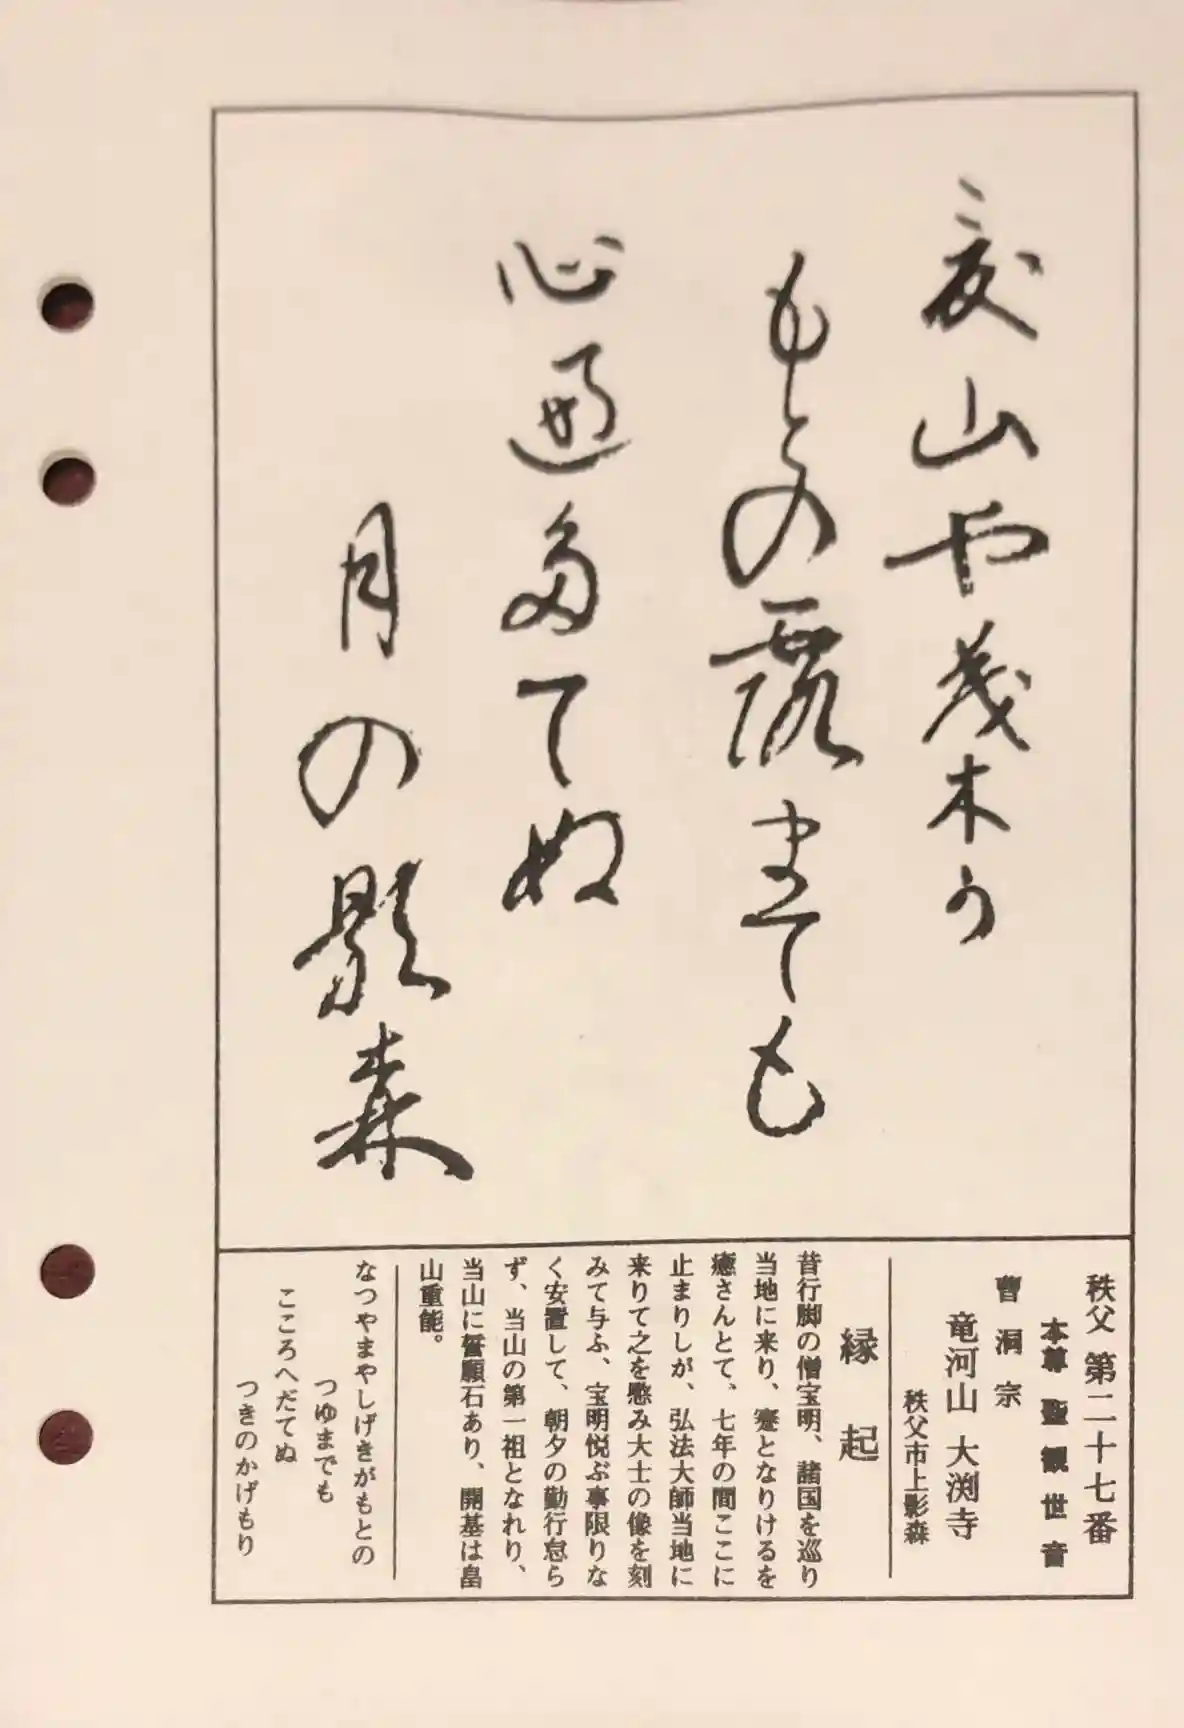 夏山や茂木か
もとの露まても
心遍多てぬ
月の影森
秩父 第二十七番
本尊 聖観世音
曹洞宗
竜河山 大渕寺
秩父市上影森
縁起
昔行脚の僧宝明、諸国を巡り
当地に来り、蹇となりけるを
癒さんとて、七年の間ここに
止まりしが、弘法大師当地に
来りて之を愍み大士の像を刻
みて与ふ、宝明悦ぶ事限りな
く安置して、朝夕の勤行怠ら
ず、当山の第一祖となれり、
当山に誓願石あり、開基は畠
山重能。
なつやまやしげきがもとの
つゆまでも
こころへだてぬ
つきのかげもり